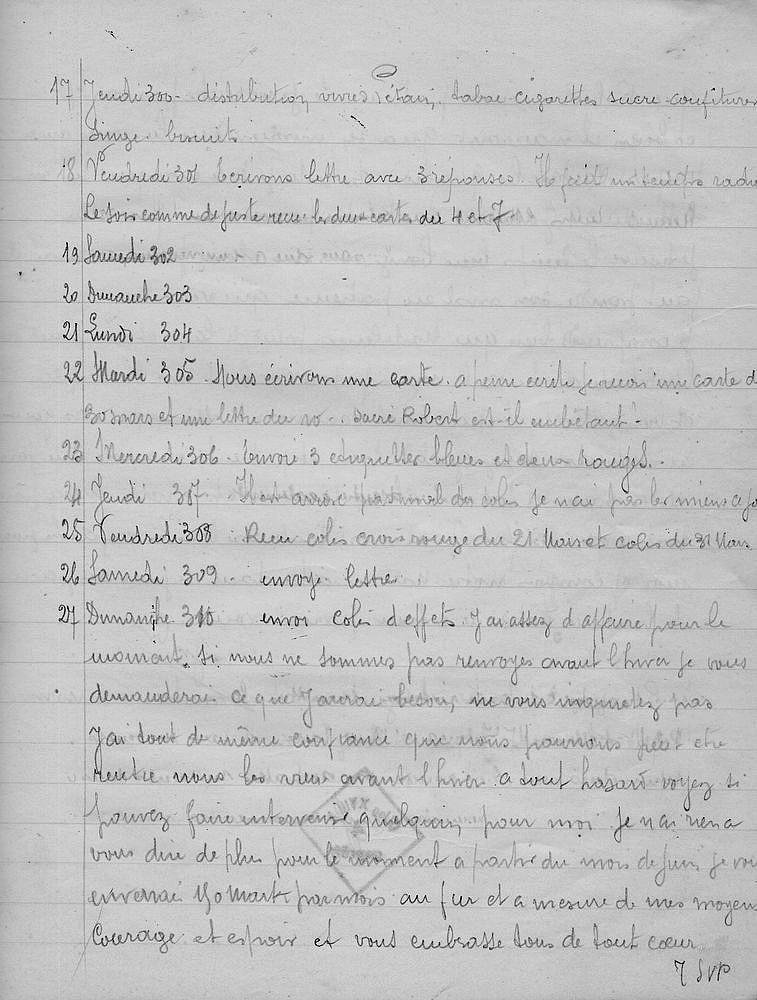 17 Jeudi 300 - distribution, vivres, tabac cigarettes sucre confitures
singe. biscuits.
18 Vendredi 301 Ecrivons lettre avec 3 réponses. Il fait un temps
Le soir comme de juste recu les deux cartes du 4 et 7.
19 Samedi 302
20 Dimanche 303
21 Lundi 304
22 Mardi 305. Nous écrivons une carte. a peine ecrite je recois une carte d
30 mars et une lettre du 10 -. sacré Robert est-il embêtant -
23 Mercredi 306 - Envoie 3 etiquettes bleues et deux rouges.
24 Jeudi 307. Il est arrivé pas mal de colis je n'ai pas les miens
25 Vendredi 308 : Recu colis croix rouge du 21 Mars et colis du 31 Mars
26 Samedi 309. envoye lettre
27 Dimanche 310 envoi colis d'effets. J'ai assez d'affaire pour le
moment. Si nous ne sommes pas renvoyes avant l'hiver je vous
demanderai ce que j'aurai besoin, ne vous inquietez pas
J'ai tout de même confiance que nous pourrons peut etre
rentre nous les vieux avant l'hiver. a tout hasard voyez si
pouvez faire intervenir quelqu'un pour moi. Je n'ai rien a
vous dire de plus pour le moment a partir du mois de juin je vo
enverrai 40 Mark par mois au fur et a mesure de mes moyens
Courage et espoir et vous embrasse tous de tout cœur.
T SVP